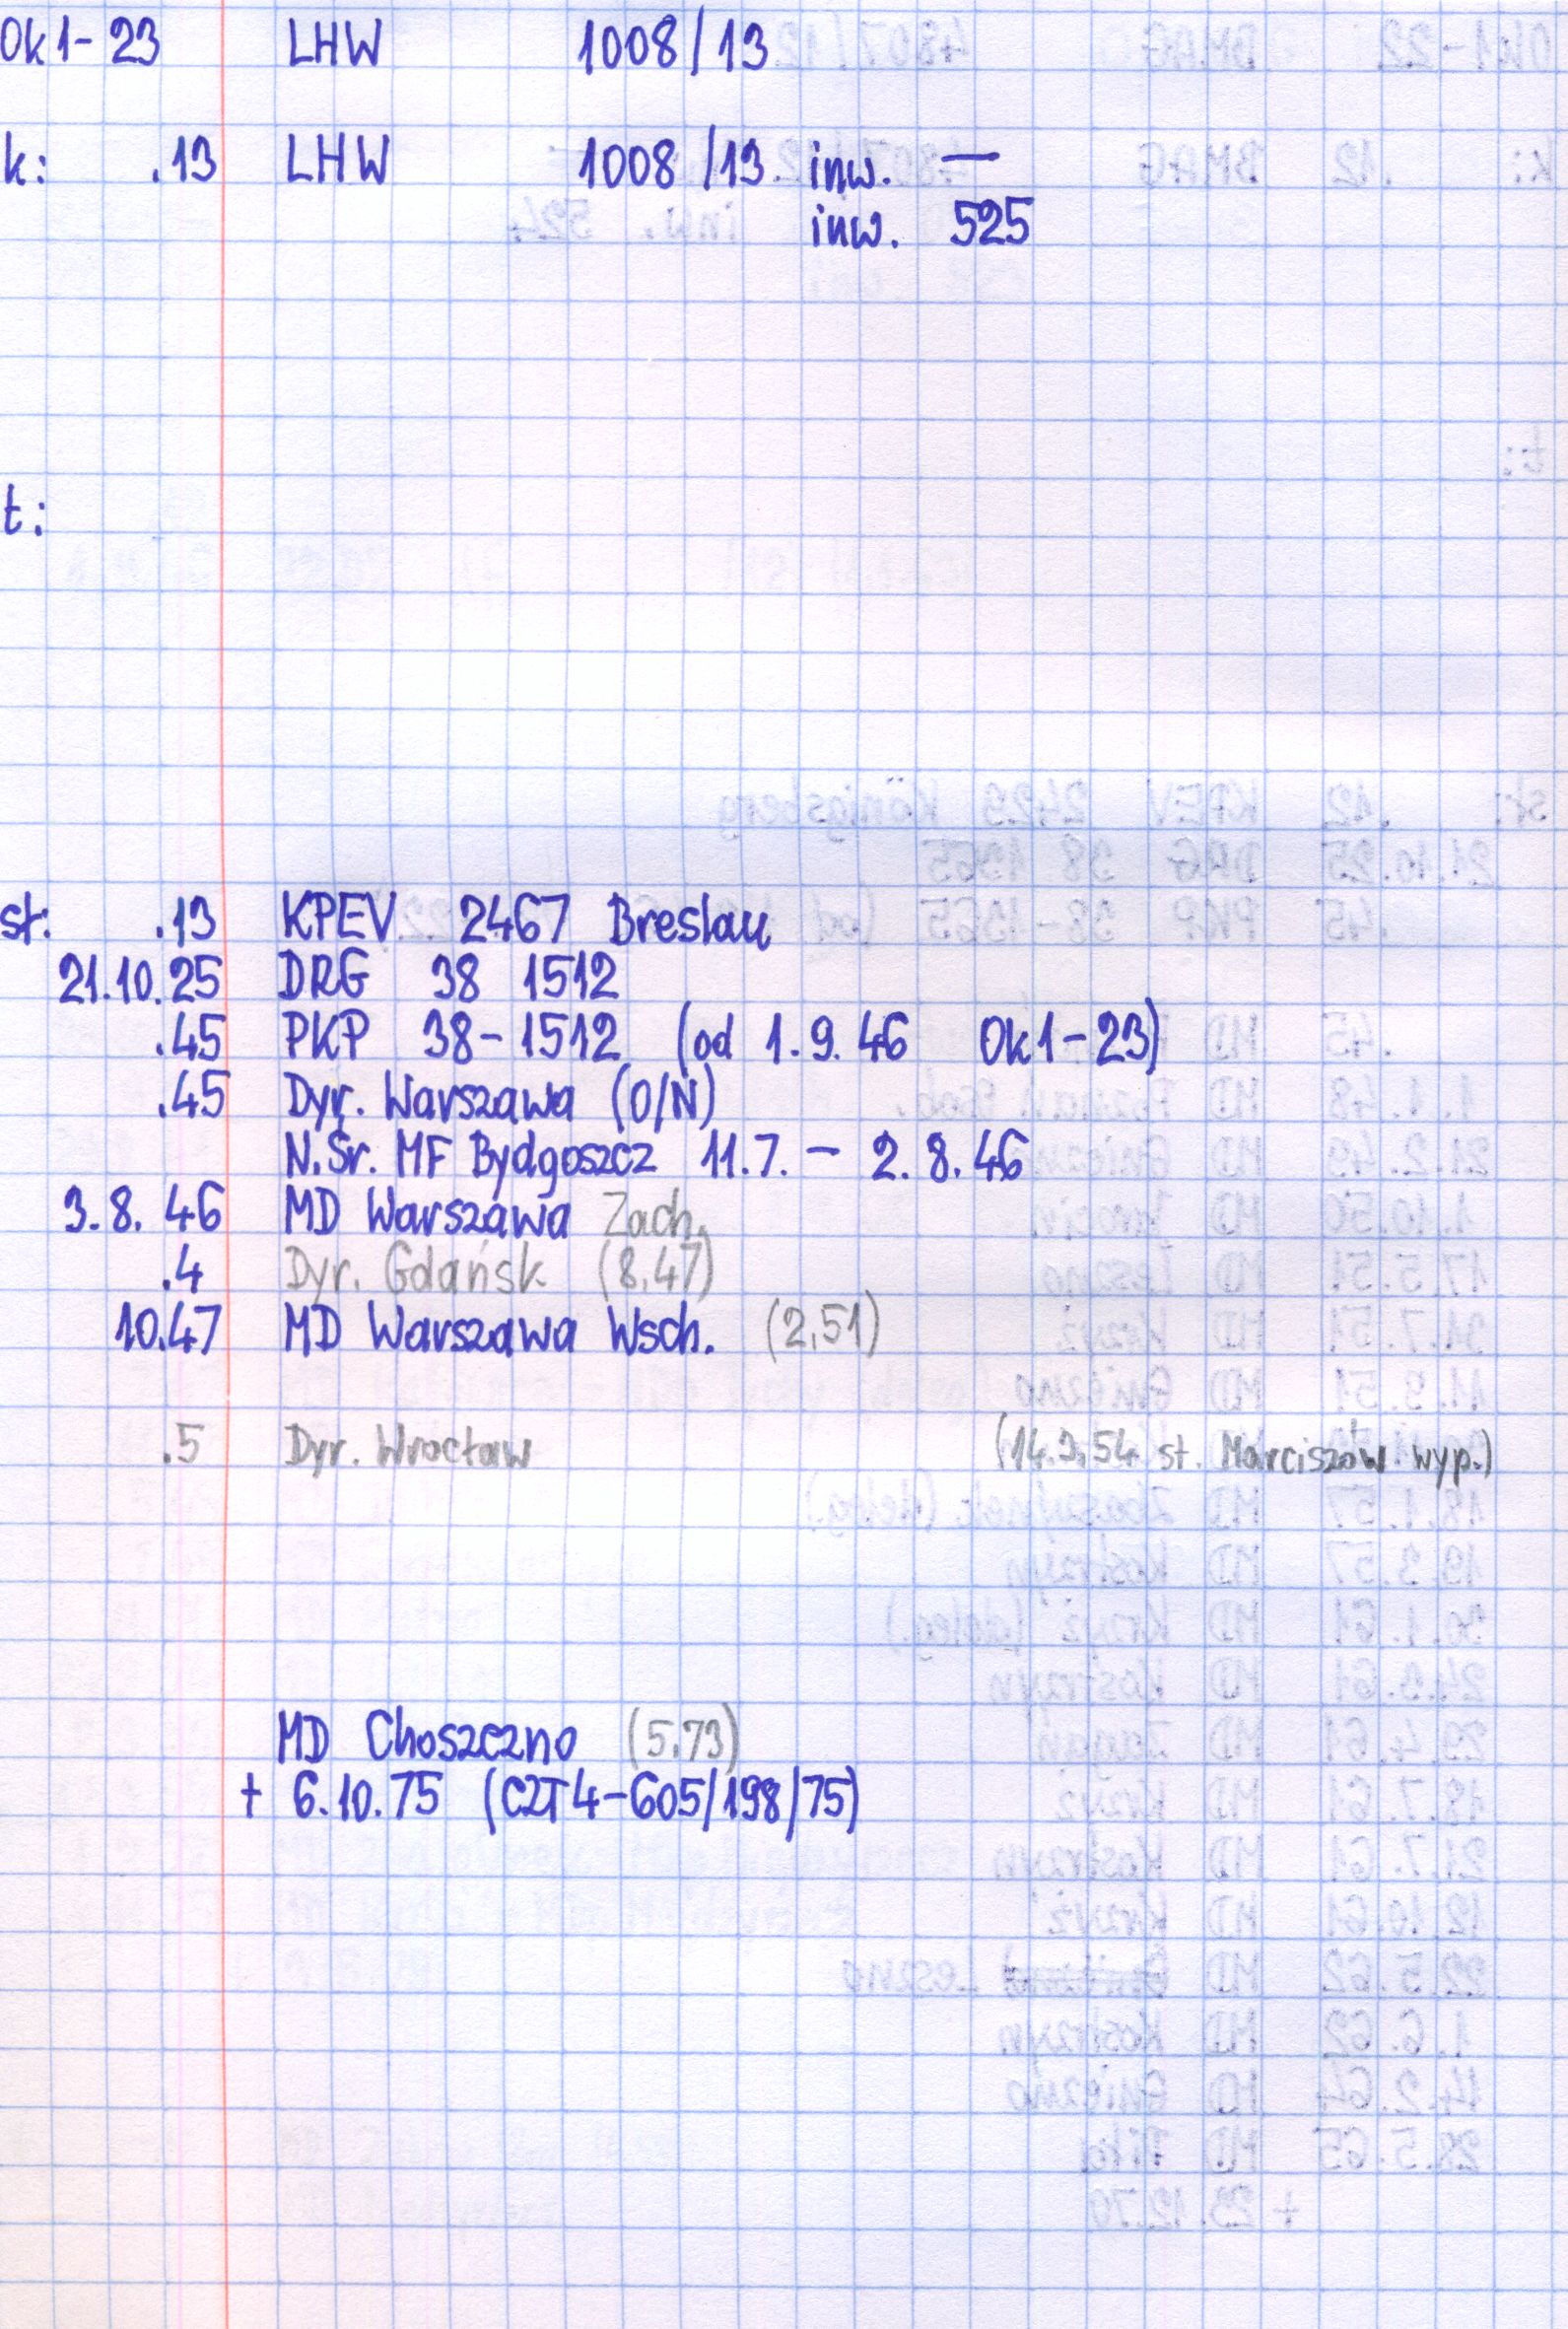 Ok1-23 LHW 1008/13
k: .13 LHW 1008/13 inw. —
inw. 525
t:
st: .13 KPEV 2467 Breslau
21.10.25 DRG 38 1512
.45 PKP 38-1512 (od 1.9.46 Ok1-23)
.45 Dyr. Warszawa (O/N)
N.Śr. MF Bydgoszcz 11.7. – 2.8.46
3.8.46 MD Warszawa Zach.
.4 Dyr. Gdańsk (8,47)
10.47 MD Warszawa Wsch. (2,51)
.5 Dyr. Wrocław (14.3.54 st. Marciszów wyp.)
MD Choszczno (5.73)
+ 6.10.75 (CZT4-605/198/75)